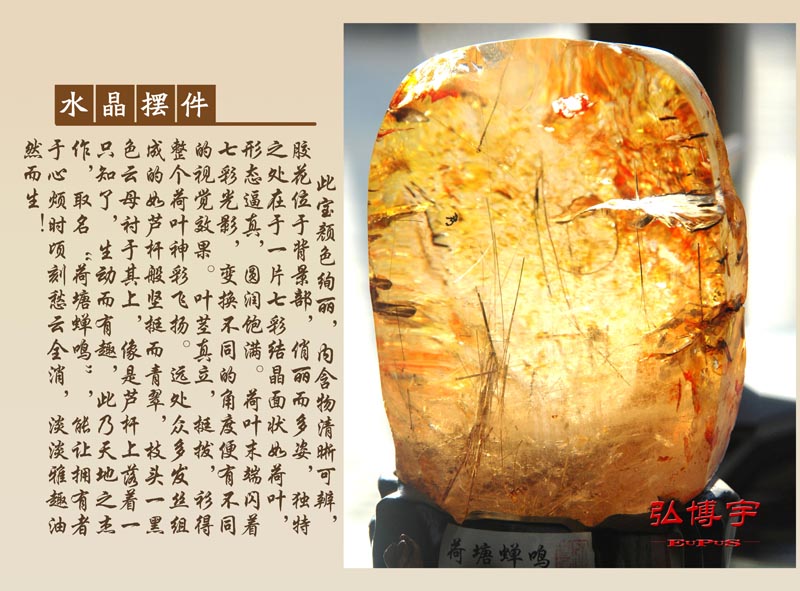 水晶摆件
此宝颜色绚丽，内含物清晰可辨，
胶花位于背景部，俏丽而多姿，独特
之处在于一片七彩结晶面状如荷叶，
形态逼真，圆润饱满。荷叶末端闪着
七彩光影，变换不同的角度便有不同
的视觉效果。叶茎真立，挺拔，衫得
整个荷叶神彩飞扬。远处众多发丝组
成的如芦杆般坚挺而青翠，枝头一黑
色云母衬于其上，像是芦杆上落着一
只知了，生动而有趣，此乃天地之杰
作，取名“荷塘蝉鸣”，能让拥有者
于心烦时顷刻愁云全消，淡淡雅趣油
然而生！
荷塘蝉鸣
弘博宇
EUPUS